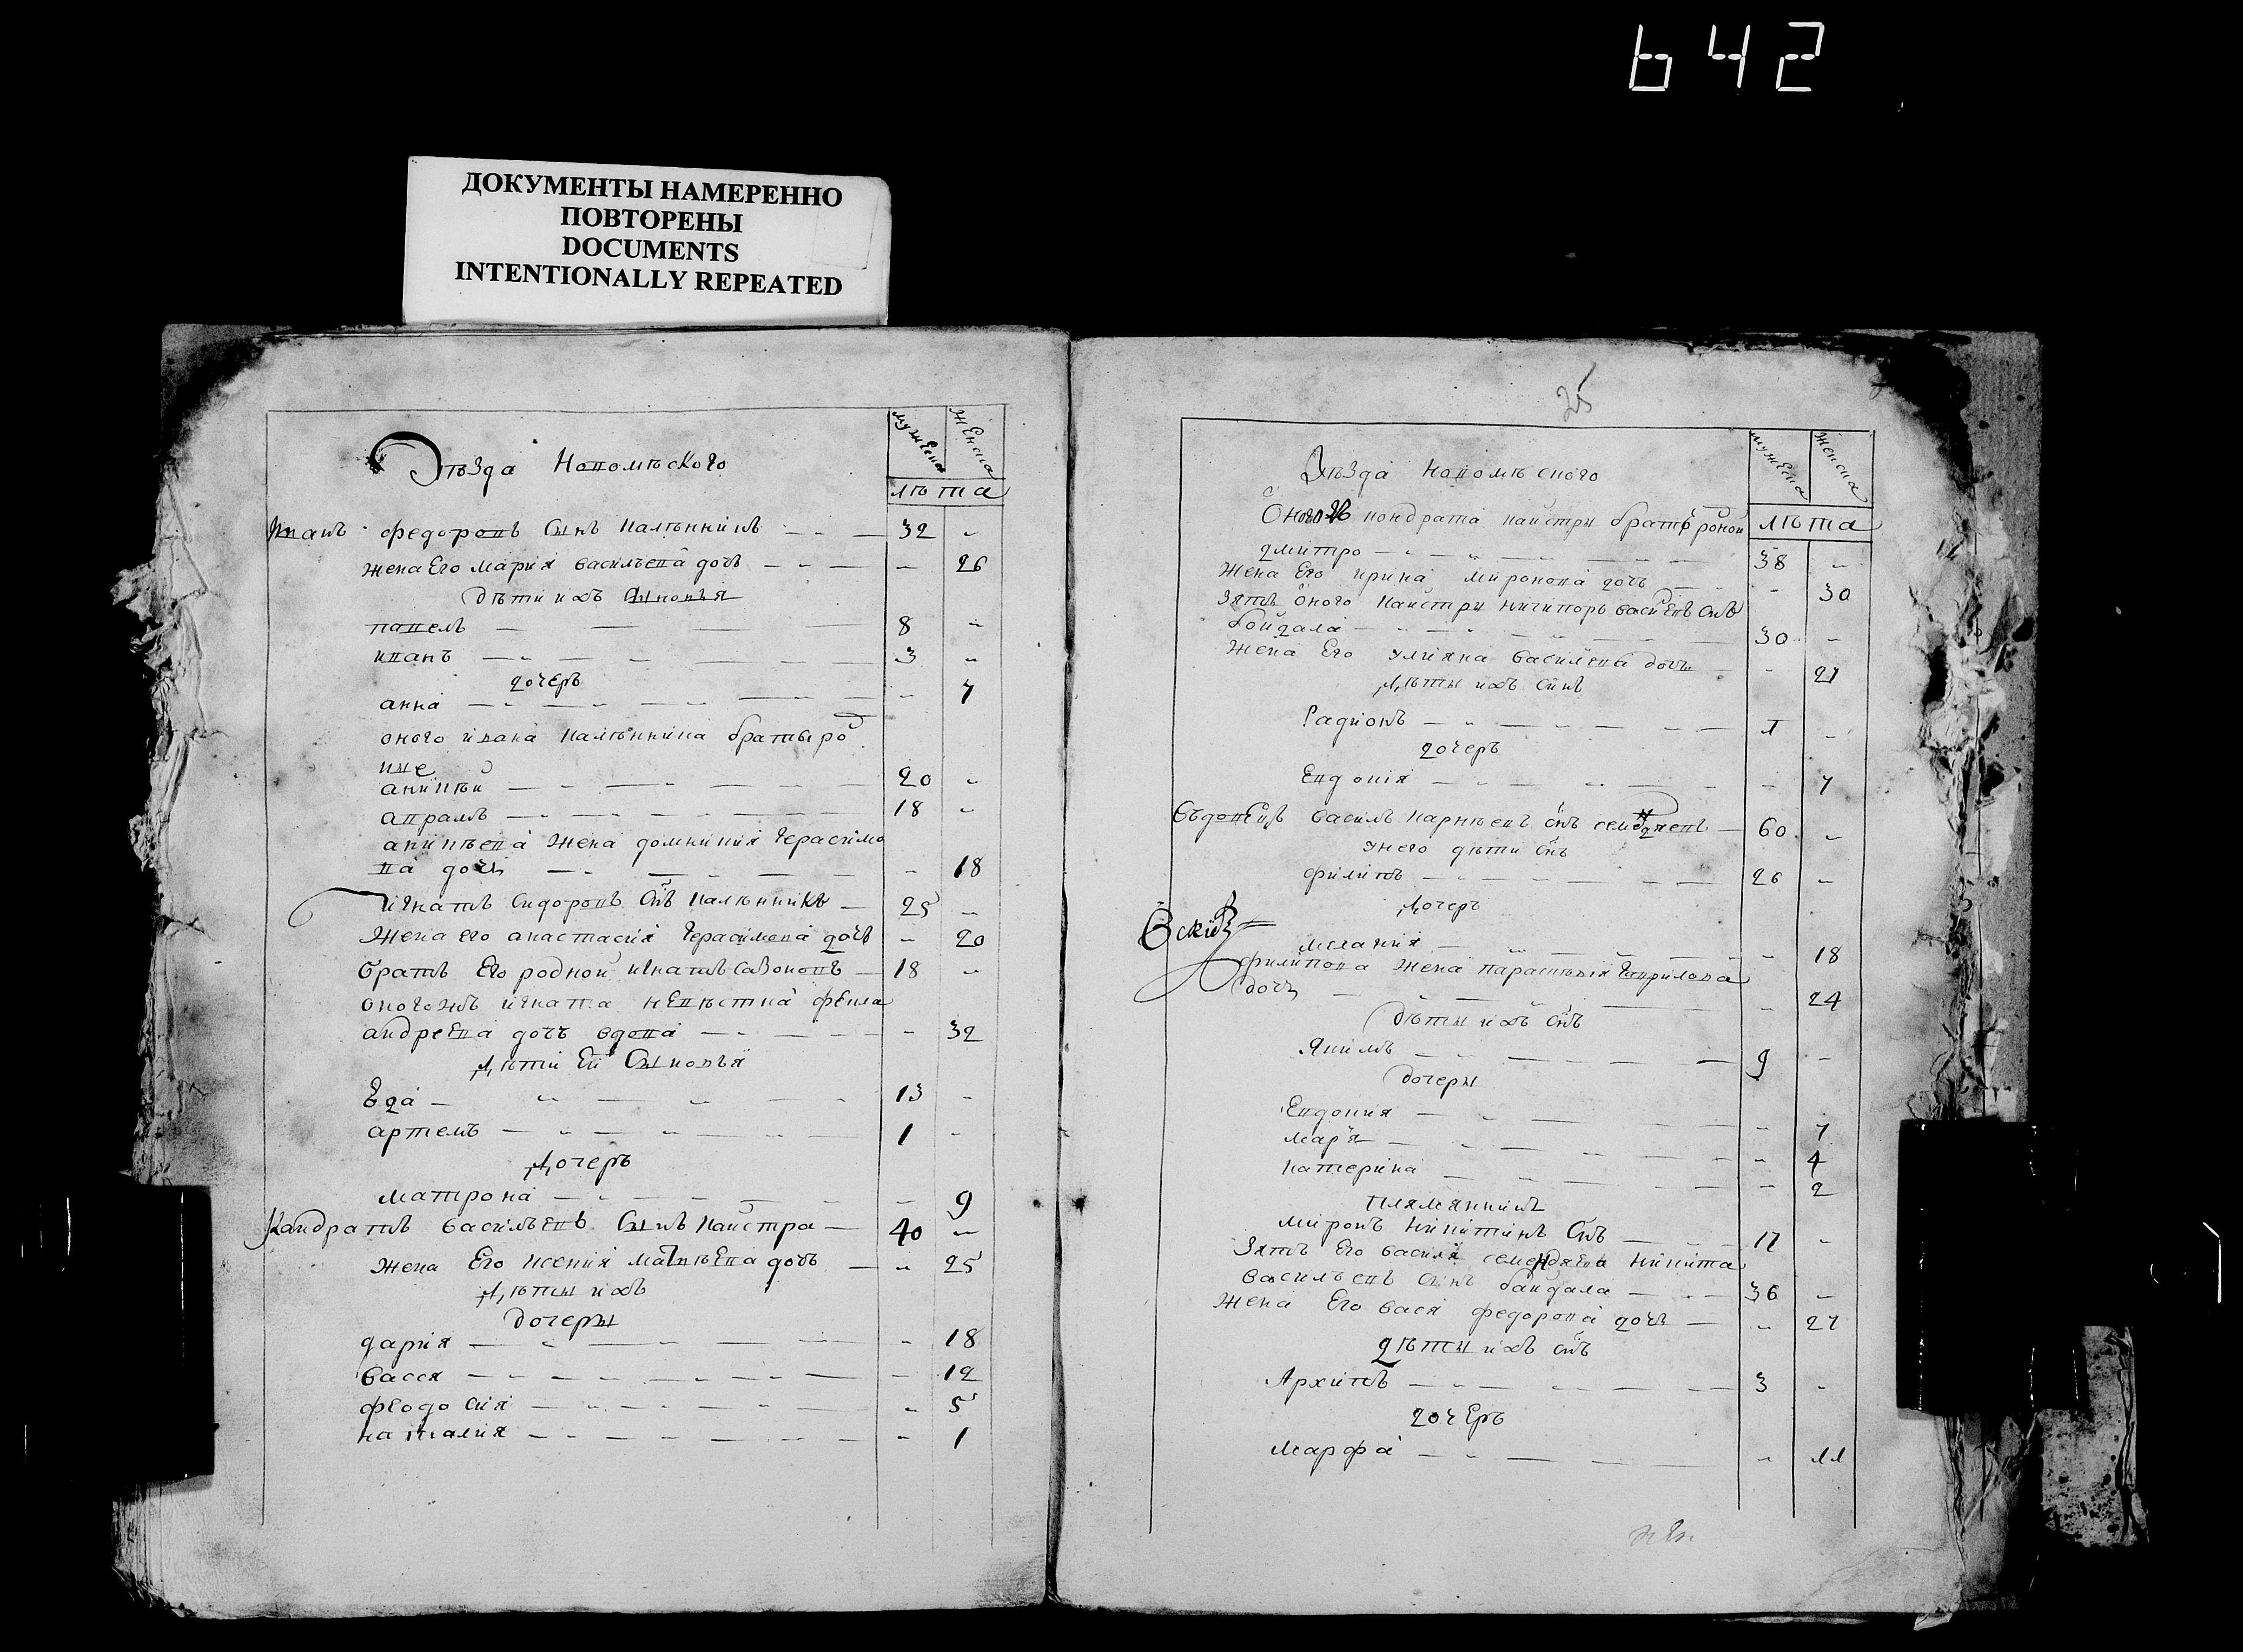 642
ДОКУМЕНТЫ НАМЕРЕННО
ПОВТОРЕНЫ
DOCUMENTS
INTENTIONALLY REPEATED
мужеска женска
уѣзда коломѣского
лѣта
иванъ федоровъ сынъ калѣнникъ 32
жена Его мария василъева дочъ 26
дѣти ихъ сыновъя
павелъ 8
иванъ 3
дочеръ
анна 7
оного ивана калѣнника братъя род
ные
аникѣй 20
аврамъ 18
аникѣева жена домникия герасимо
ва дочь 18
игнатъ сидоровъ снъ калѣнникъ 25
жена его анастасия герасимова дочъ 20
братъ Его родной игнатъ сазоновъ 18
оногожъ игната невѣстка фекла
андреева дочъ вдова 32
дѣти Ей сыновъя
Еда 13
артемъ 1
дочеръ
матрона 9
кандратъ василъевъ сынъ кайстра 40
жена Его ксения матвѣева дочъ 25
дѣты ихъ
дочеры
дария 18
васся 12
феодосия 5
наталия 1
25
мужеска женска
уѣзда коломѣского
оногожъ кондрата кайстры братъ родной
лѣта
дмитро 38
жена Его ирина миронова дочъ 30
зятъ оного кайстры ничипоръ васиевъ снъ
бойдала 30
жена Его улияна василева дочъ 21
дѣты ихъ синъ
Радионъ 1
дочеръ
Евдокия 7
въдовецъ василъ карнѣевъ снъ семендяевъ 60
унего дѣти снъ
филипъ 26
дочеръ
мелания 18
филипова жена параскѣвия гаврилова
дочъ 24
дѣты ихъ снъ
якимъ 9
дочеры
Евдокия 7
маръя 4
катерина 2
племянникъ
миронъ никитинъ снъ 17
зятъ Его василя семендяева никита
василъевъ синъ байдала 36
жена Его вася федорова дочъ 27
дѣты ихъ снъ
Архипъ 3
дочеръ
марфа 11